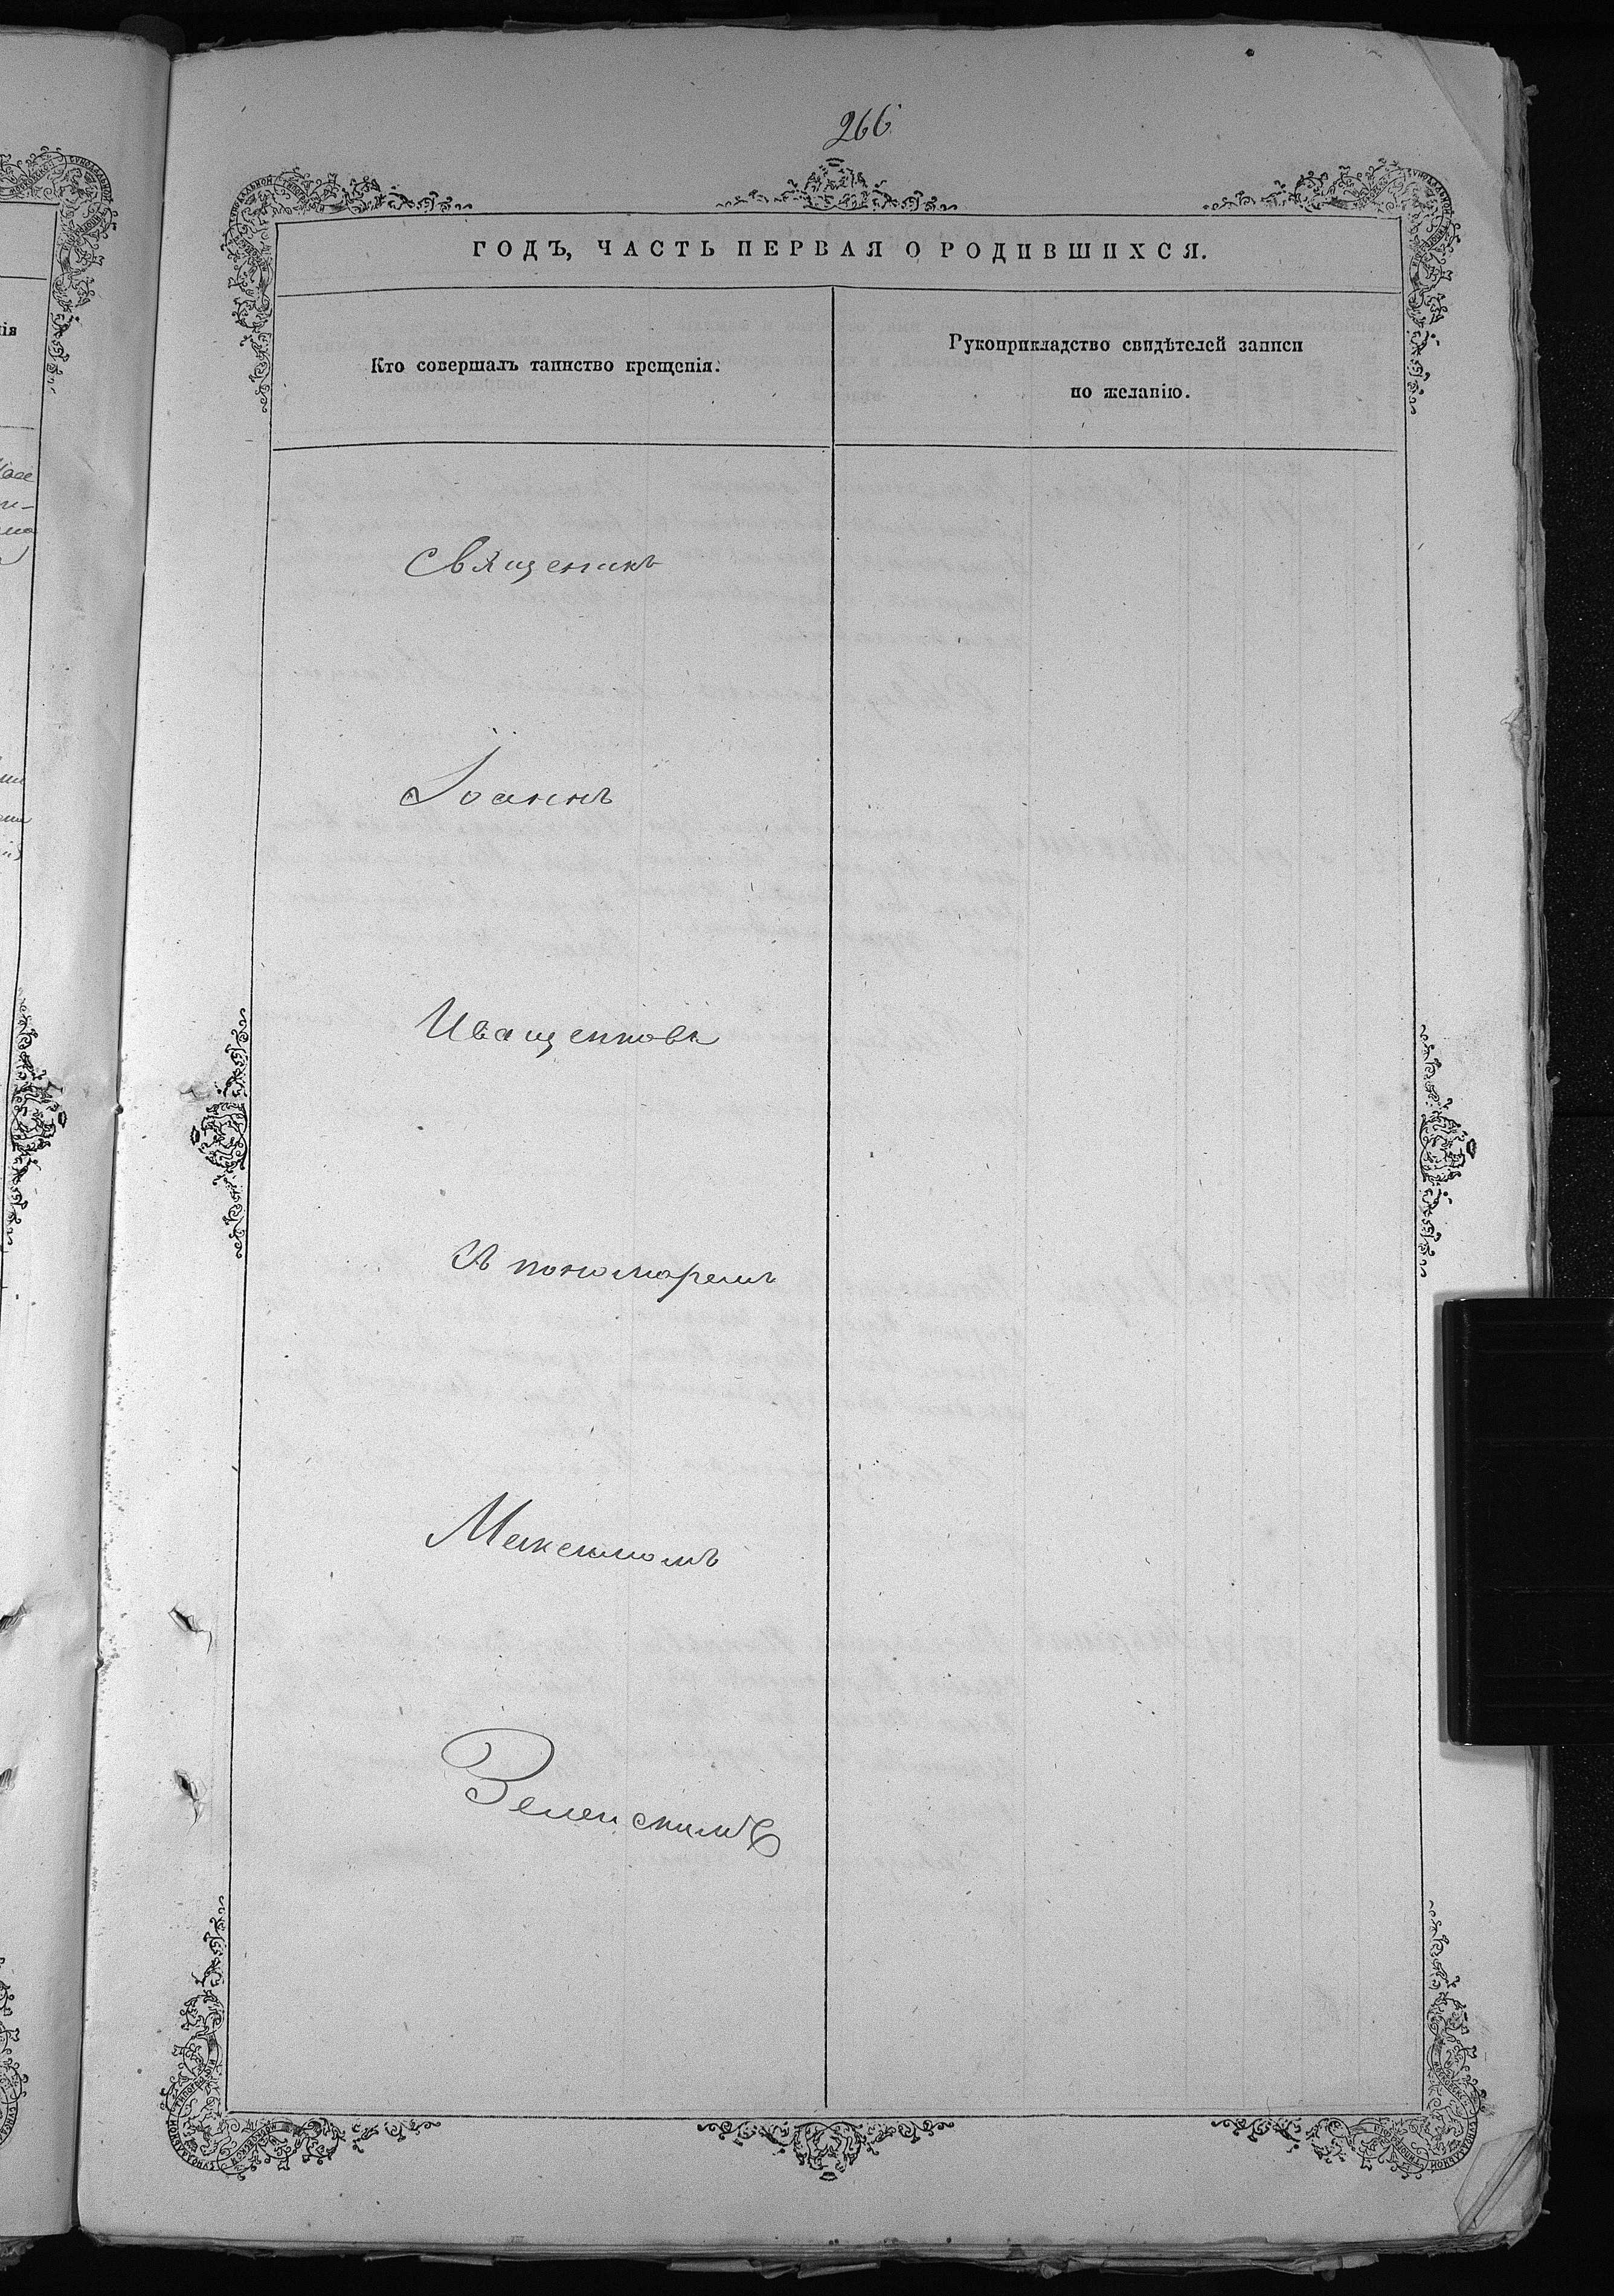 266
ГОДЪ, ЧАСТЬ ПЕРВАЯ О РОДИВШИХСЯ.
Кто совершалъ таинство крещенія.
Рукоприкладство свидѣтелей записи
по желанію.
Священикъ
Іоаннъ
Иващенковъ
Съ пономаремъ
Максимомъ
Зеленскимъ